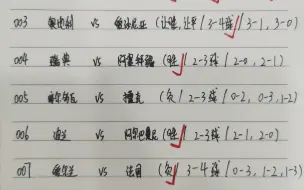 003 奥地利 vs 爱沙尼亚 (让胜,让平 / 3-4球 / 3-1, 3-0)
004 瑞典 vs 阿塞拜疆 (胜 / 2-3球 / 2-0, 2-1)
005 vs 捷克 (负 / 2-3球 / 0-2, 0-3, 1-2)
006 波兰 vs 阿尔巴尼亚 (胜 / 2-3球 / 2-1, 2-0)
007 爱尔兰 vs 法国 (负 / 3-4球 / 0-3, 1-2, 1-3)